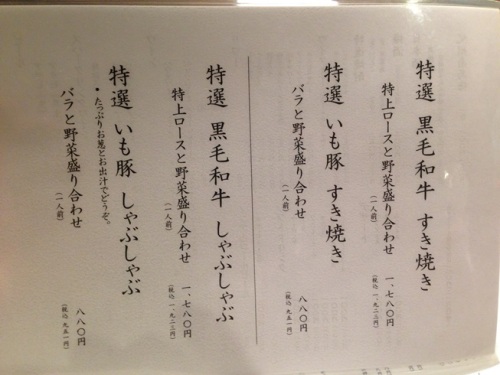 特選 黒毛和牛 すき焼き
特上ロースと野菜盛り合わせ
(一人前)
一、七八〇円
(税込 一、九二三円)
特選 いも豚 すき焼き
バラと野菜盛り合わせ
(一人前)
八八〇円
(税込 九五一円)
特選 黒毛和牛 しゃぶしゃぶ
特上ロースと野菜盛り合わせ
(一人前)
一、七八〇円
(税込 一、九二三円)
特選 いも豚 しゃぶしゃぶ
・たっぷりお葱とお出汁でどうぞ。
バラと野菜盛り合わせ
(一人前)
八八〇円
(税込 九五一円)